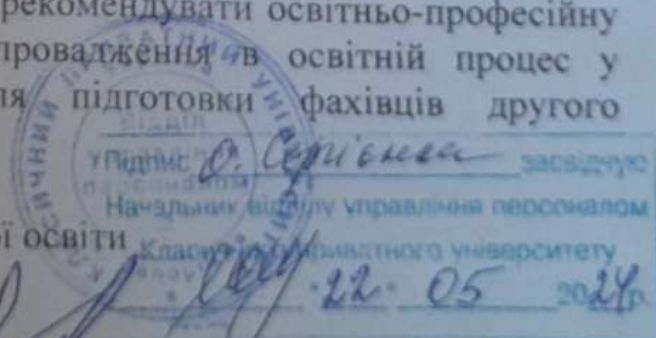 рекомендувати освітньо-професійну
провадження в освітній процес у
підготовки фахівців другого
Підпис О. засвідчую
Начальник відділу управління персоналом
ї освіти
Класичного приватного університету
"22" 05 2024р.